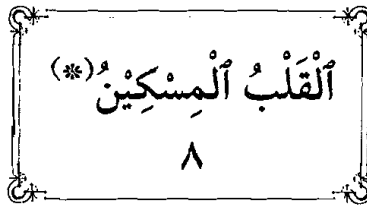 ٱلْقَلْبُ ٱلْمِسْكِيْنُ (*)
٨